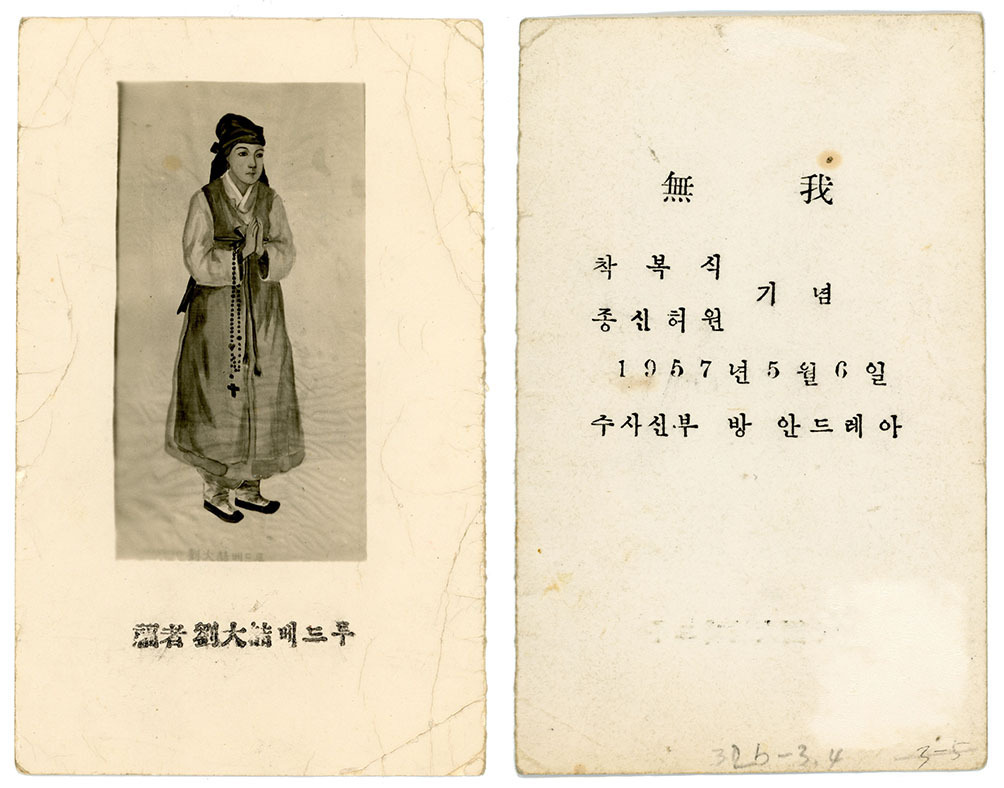 福者 劉大喆베드루
無 我
착 복 식
기 념
종신허원
1957년5월6일
수사신부 방 안드레아
3-5